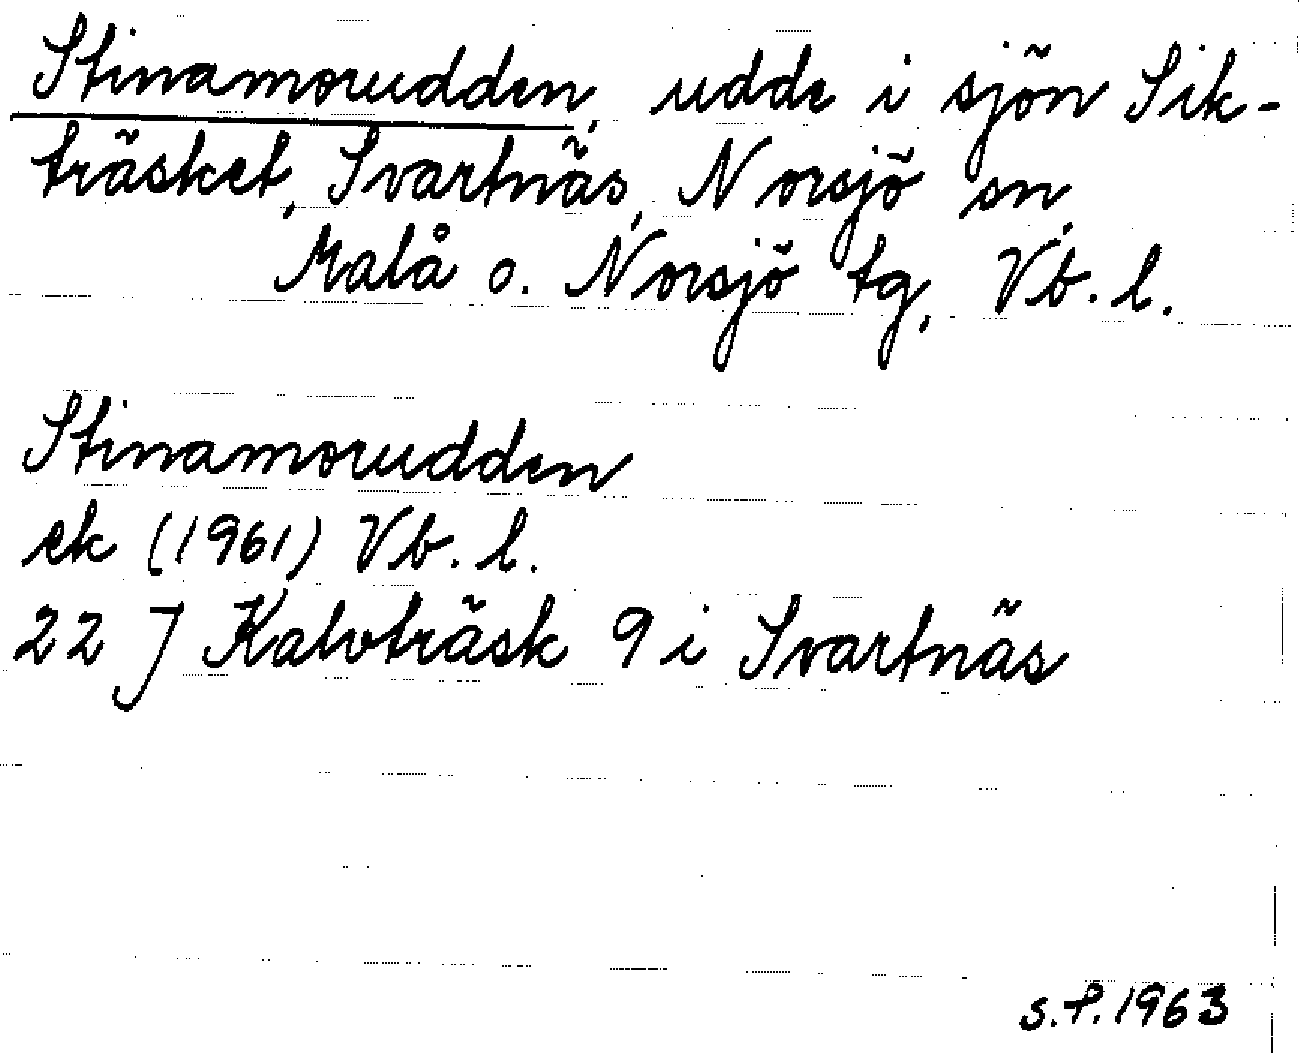 Stinamorudden, udde i sjön Sik-
träsket, Svartnäs, Norsjö sn,
Malå o. Norsjö tg, Vb. l.
Stinamorudden
ek (1961) Vb. l.
22 J Kalvträsk 9 i Svartnäs
S.P. 1963